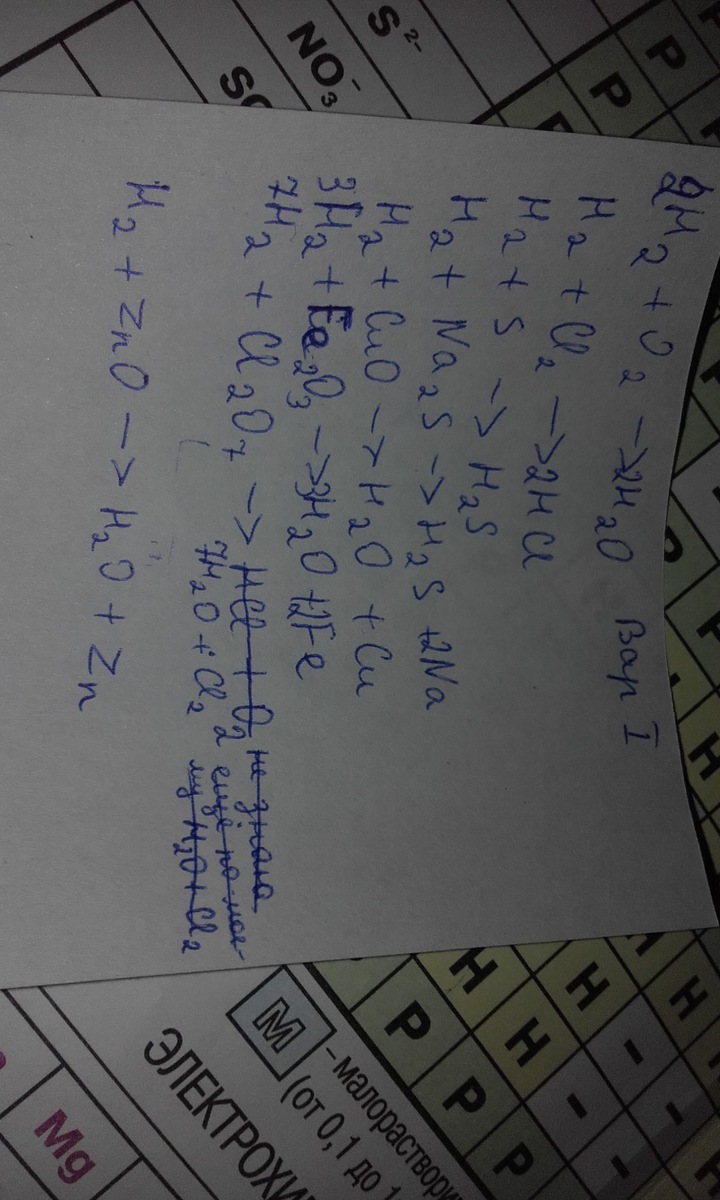 2H2 + O2 -> 2H2O Вар I
H2 + Cl2 -> 2HCl
H2 + S -> H2S
H2 + Na2S -> H2S + 2Na
H2 + CuO -> H2O + Cu
3H2 + Fe2O3 -> 3H2O + 2Fe
7H2 + Cl2O7 -> HCl + O2 не знаю
7H2O + Cl2 ещё по мое-
му H2O + Cl2
H2 + ZnO -> H2O + Zn
S2-
NO3-
Р
Р
Н
Н
Н
Н
Н
Р
Р
Р
М
– малораствори
(от 0,1 до 1
ЭЛЕКТРОХИ
Mg